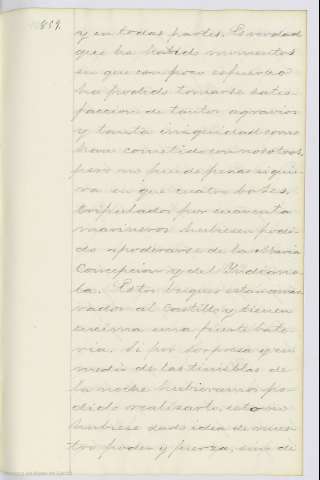 859.
y en todas partes. Es verdad
que ha habido momentos
en que con poco esfuerzo
ha podido tomarse satis-
faccion de tantos agravios
y tanta iniquidad como
han cometido con nosotros,
pero no puede pensarse
en que cuatro botes,
tripulados por cuarenta
marineros hubiesen podi-
do apoderarse de la Maria
Concepcion y del Indiana-
la. Estos buques están
al Castillo y tienen
encima una fuerte bate-
ria. Si por sorpresa y en
medio de las tinieblas de
la noche hubieramos po-
dido realizarlo, esto no
hubiese dado idea de nues-
tro poder y fuerza, sino de